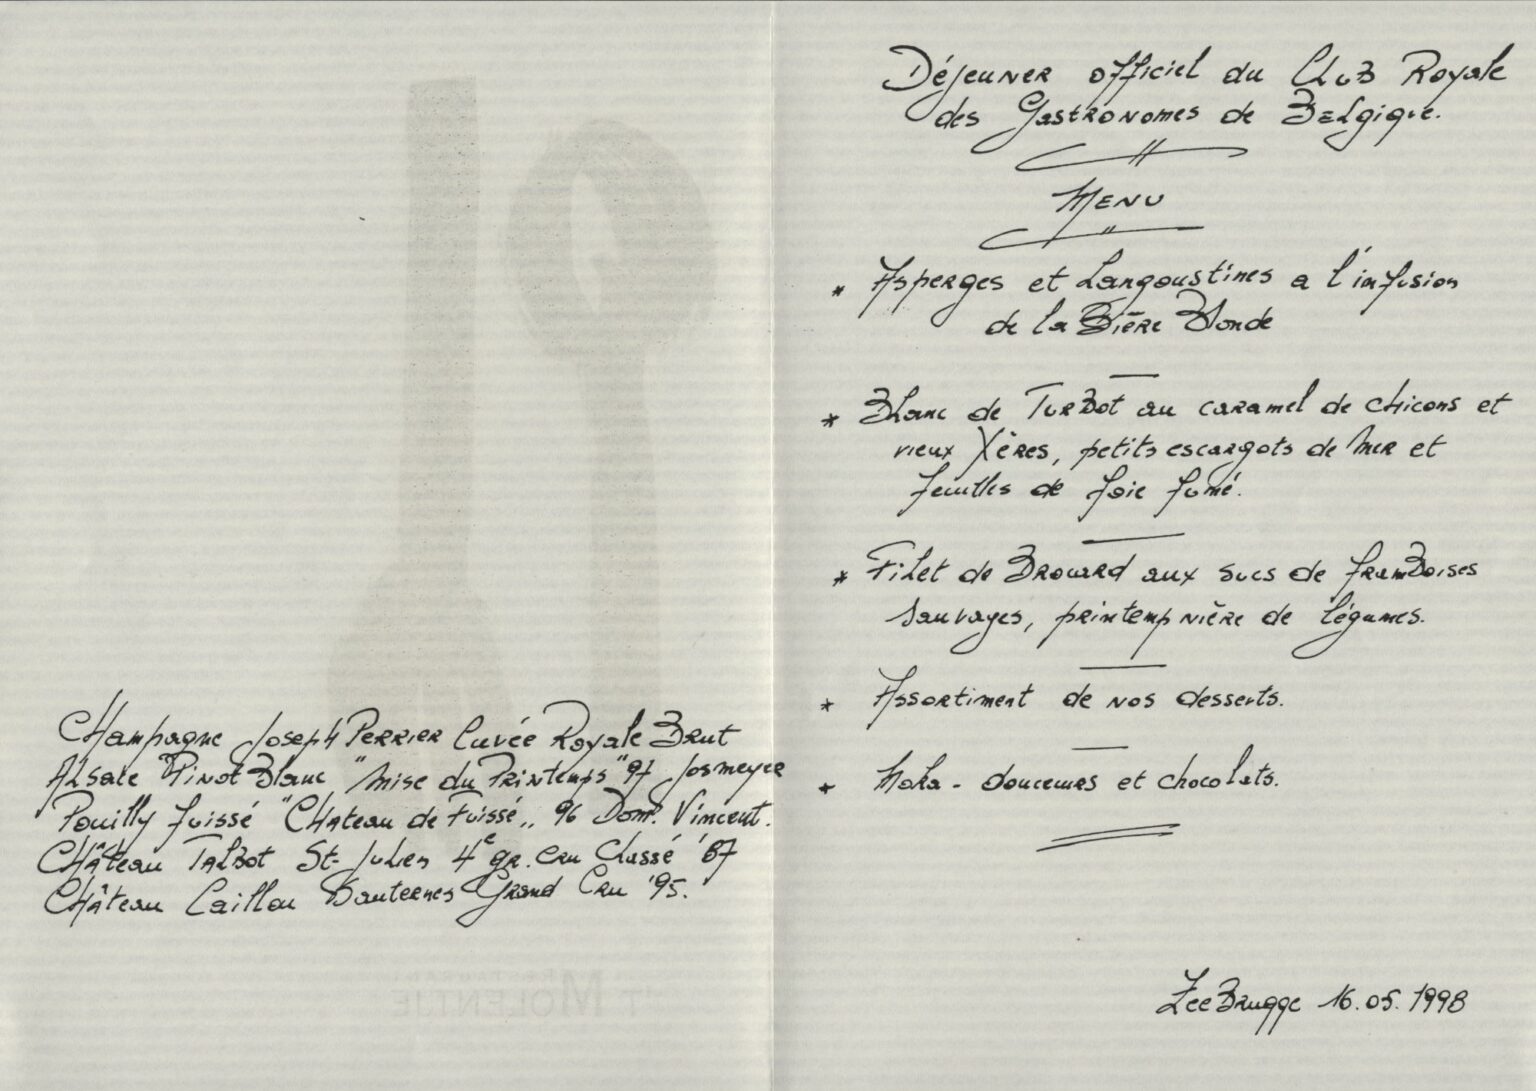 Champagne Joseph Perrier Cuvée Royale Brut
Alsace Pinot Blanc "Mise du Printemps" 97 Josmeyer
Pouilly Fuissé "Château de Fuissé,, 96 Dom. Vincent.
Château Talbot St-Julien 4e gr. cru Classé '87
Château Caillou Sauternes Grand Cru '95.
RESTAURANT
'T MOLENTJE
Déjeuner officiel du Club Royale
des Gastronomes de Belgique.
Menu
* Asperges et Langoustines a l'infusion
de la Bière Blonde
* Blanc de Turbot au caramel de chicons et
vieux Xères, petits escargots de Mer et
feuilles de foie fumé.
* Filet de Brouard aux sucs de framboises
sauvages, printempnière de légumes.
* Assortiment de nos desserts.
* Moka - douceurs et chocolats.
Zeebrugge 16.05.1998